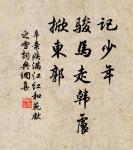 記少年
駿馬走韓盧
掀東郭
辛棄疾滿江紅和範獻
之雪詞典網